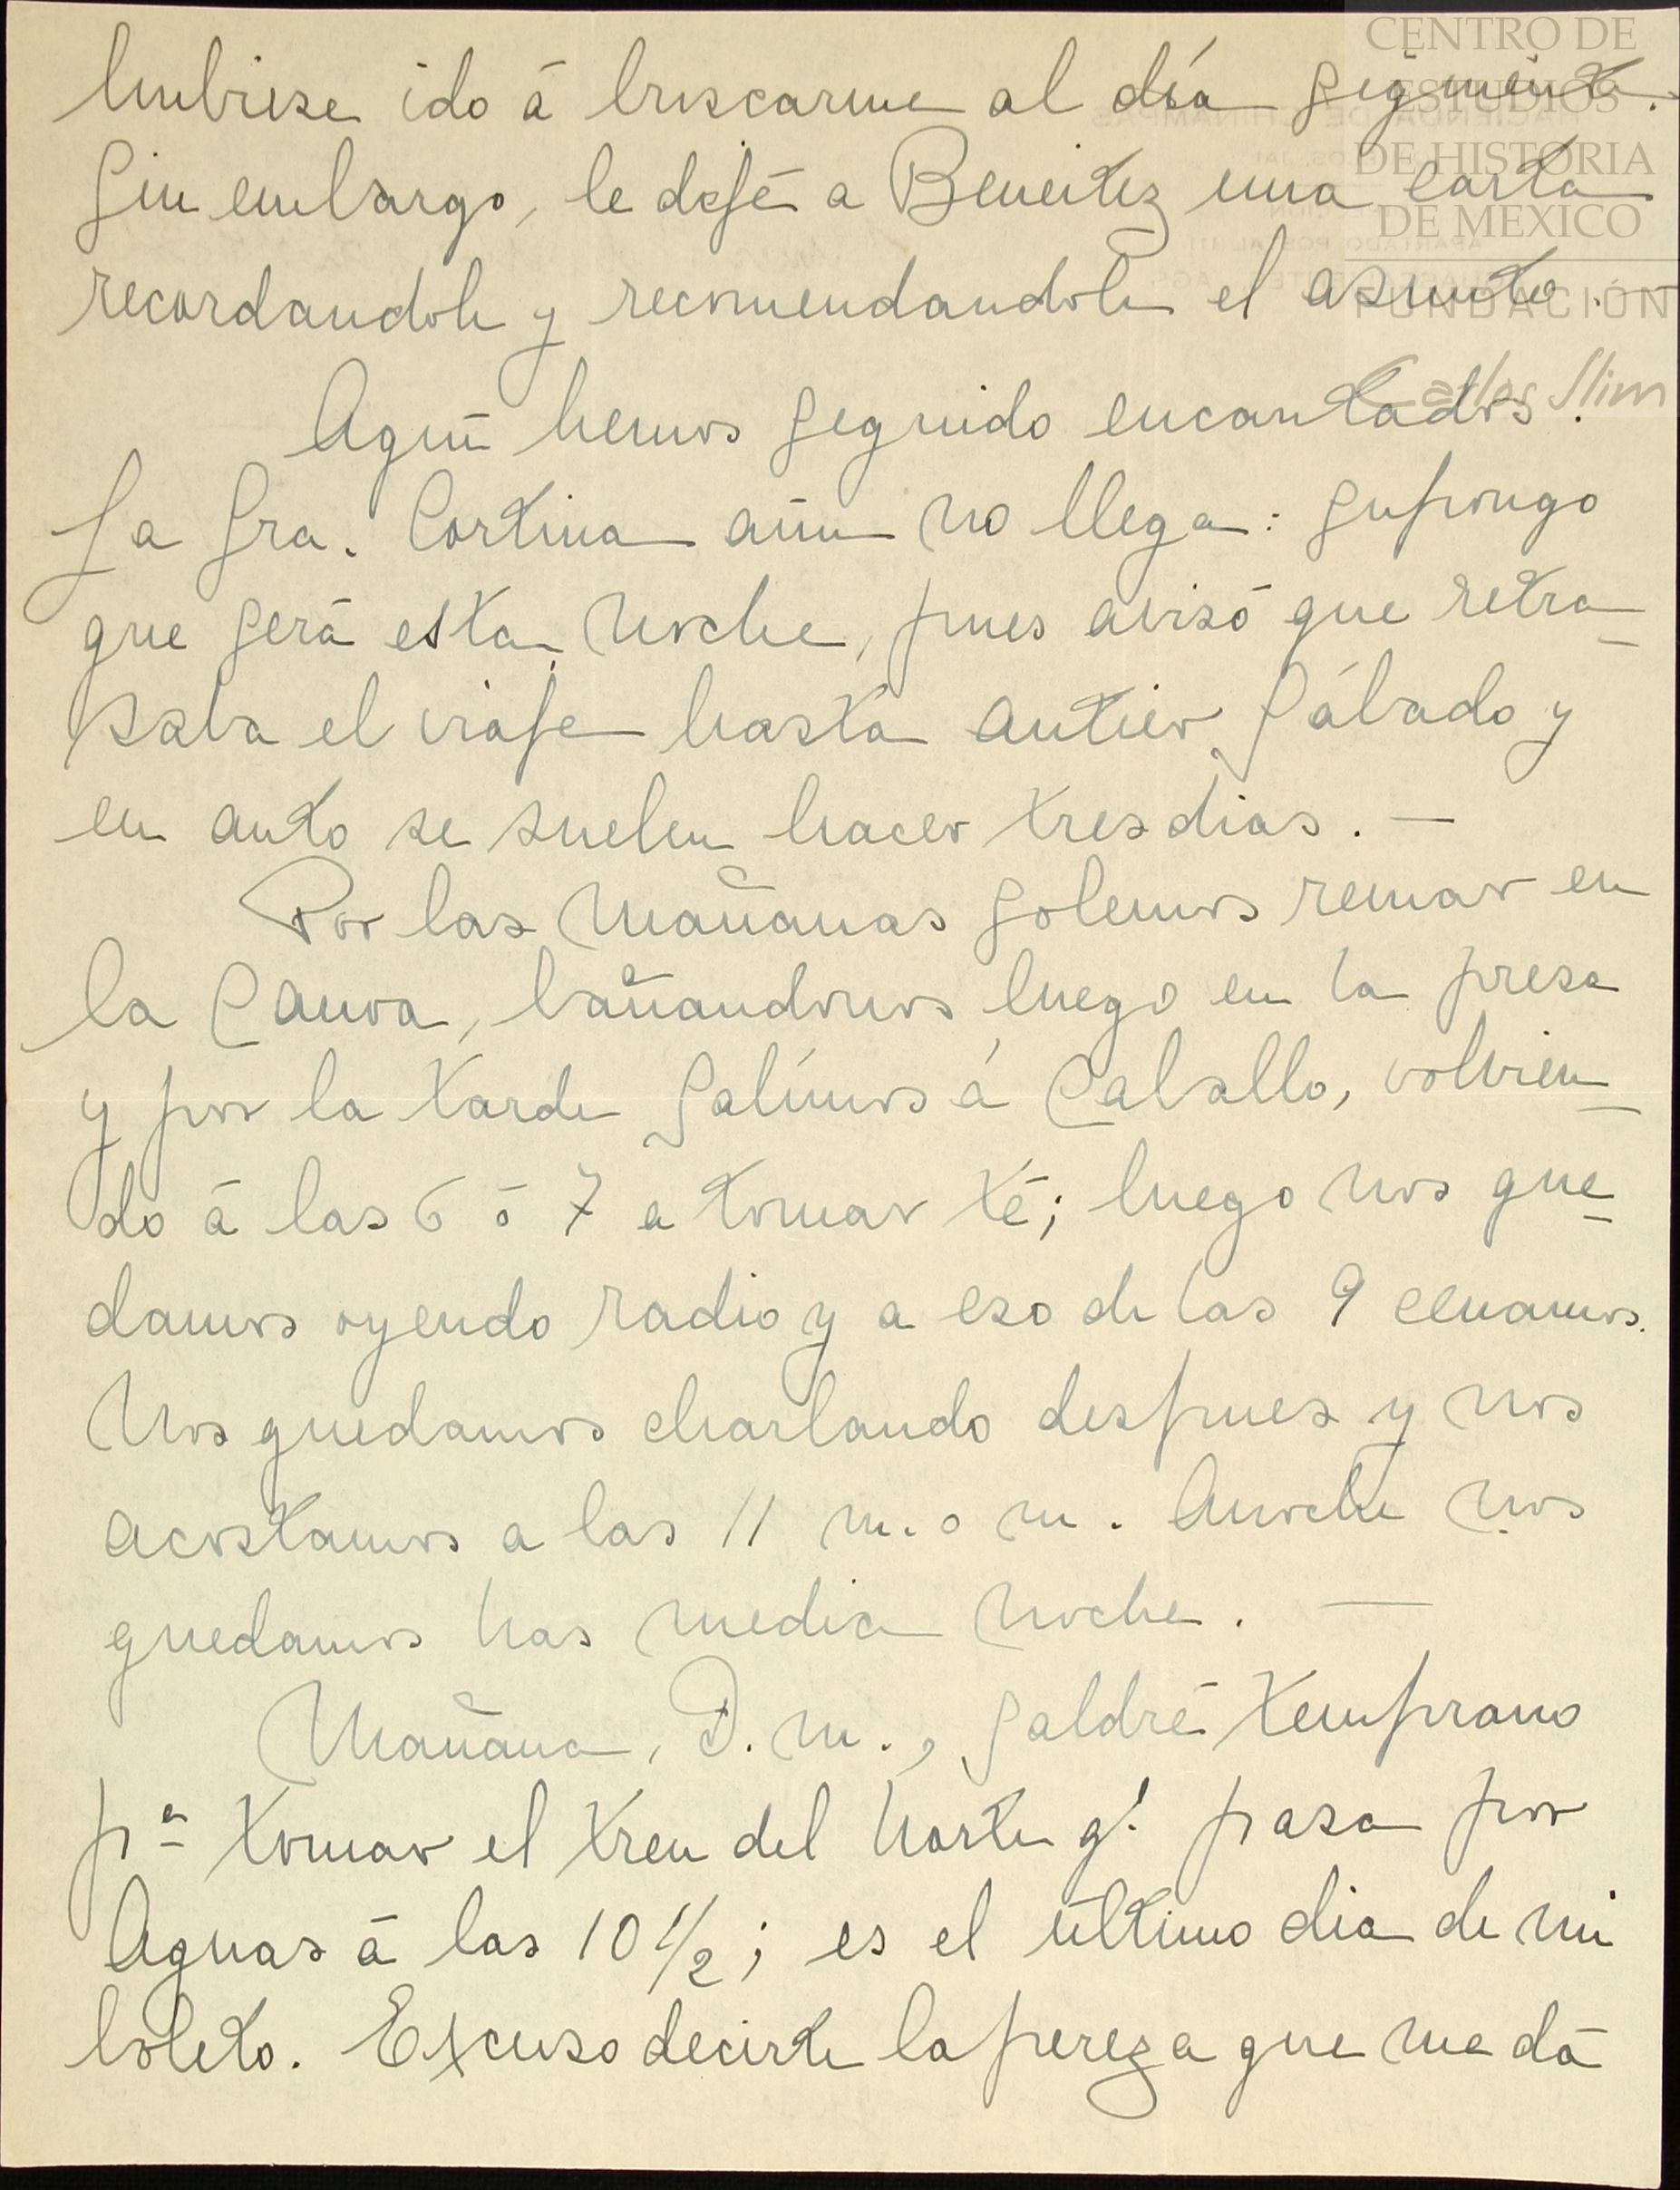 CENTRO DE
ESTUDIOS
DE HISTORIA
DE MEXICO
FUNDACIÓN
Carlos Slim
hubiese ido á buscarme al día siguiente.
Sin embargo, le dejé a Beneitez una carta
recordandole y recomendandole el asunto. —
Aquí hemos seguido encantados.
La Sra. Cortina aún no llega: supongo
que será esta noche, pues avisó que retra-
saba el viaje hasta antier Sábado y
en auto se suelen hacer tres dias. —
Por las mañanas solemos remar en
la Canoa, bañandonos luego en la presa
y por la tarde salimos á Caballo, volvien-
do á las 6 ó 7 a tomar té; luego nos que-
damos oyendo radio y a eso de las 9 cenamos.
Nos quedamos charlando despues y nos
acostamos a las 11 m. o m. Anoche nos
quedamos has media noche. —
Mañana, D. m., saldré temprano
pª tomar el tren del Norte q' pasa por
Aguas á las 10 1/2; es el último dia de mi
boleto. Excuso decirte la pereza que me dá